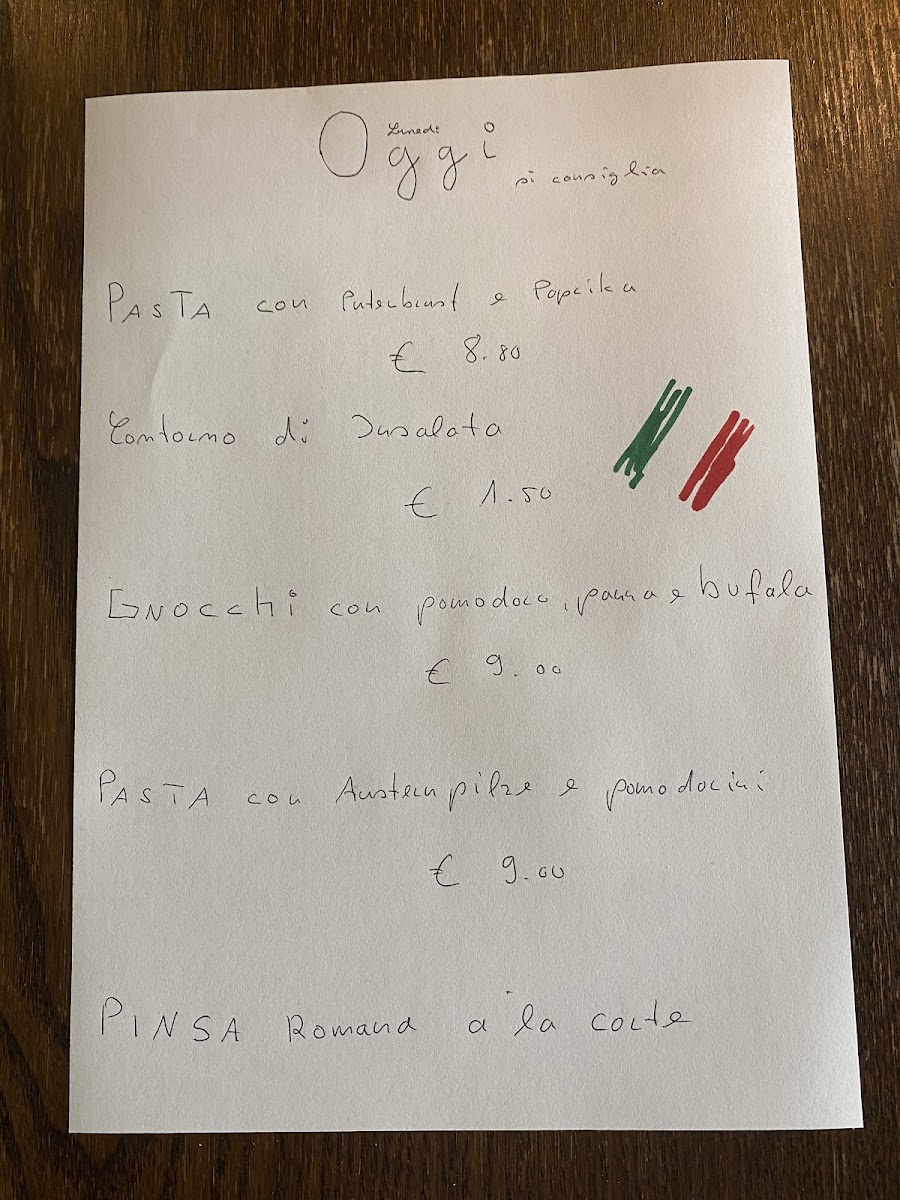 Lunedi
Oggi
si consiglia
PASTA con Putenbrust e Paprika
€ 8.80
Contorno di Insalata
€ 1.50
GNOCCHi con pomodoro, panna e bufala
€ 9.00
PASTA con Austernpilze e pomodorini
€ 9.00
PINSA Romana a la carte